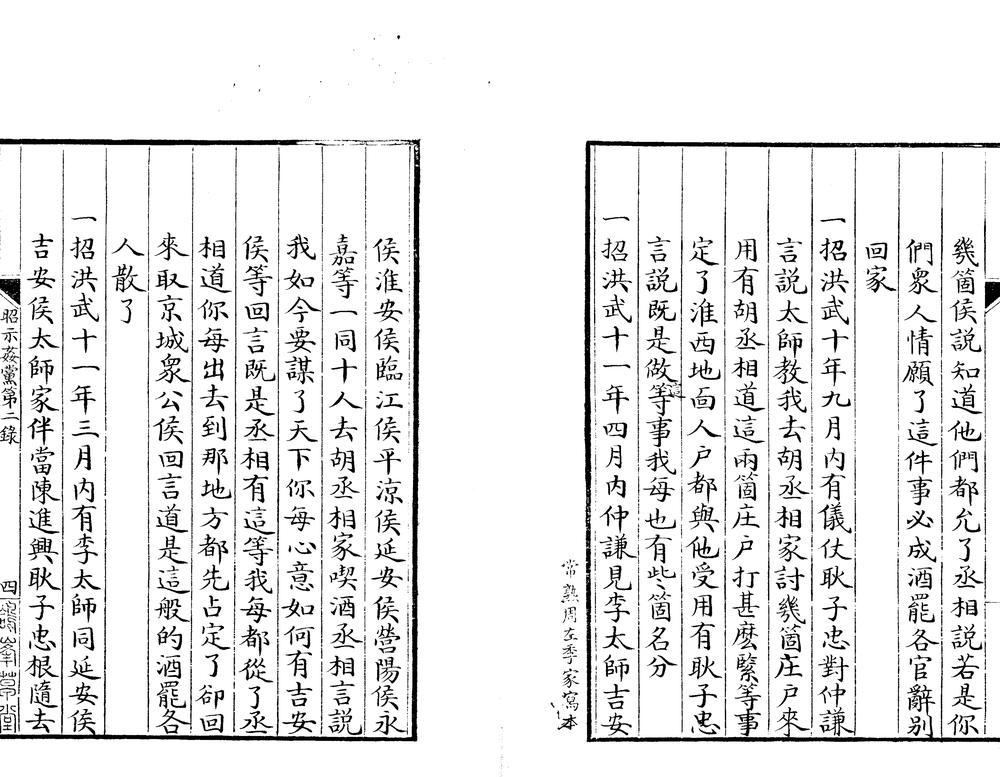 幾箇侯説知道他們都允了丞相説若是你
們衆人情願了這件事必成酒罷各官辭别
回家
一招洪武十年九月内有儀仗耿子忠對仲謙
言説太師教我去胡丞相家討幾箇庄户來
用有胡丞相道這兩箇庄户打甚麽緊等事
定了淮西地面人户都與他受用有耿子忠
言説既是做這等事我每也有些箇名分
一招洪武十一年四月内仲謙見李太師吉安
常熟周左季家寫本
侯淮安侯臨江侯平涼侯延安侯營陽侯永
嘉等一同十人去胡丞相家喫酒丞相言説
我如今要謀了天下你每心意如何有吉安
侯等回言既是丞相有這等我每都從了丞
相道你每出去到那地方都先占定了卻回
來取京城衆公侯回言道是這般的酒罷各
人散了
一招洪武十一年三月内有李太師同延安侯
吉安侯太師家伴當陳進興耿子忠根隨去
昭示姦黨第二錄
四